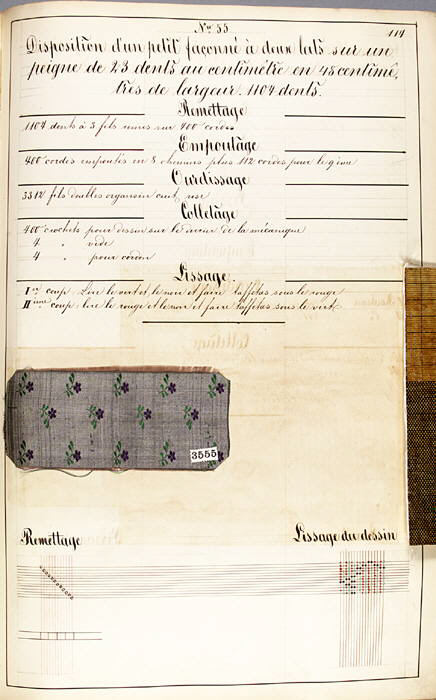 N° 55
114
Disposition d'un petit façonné à deux lats sur un
peigne de 23 dents au centimètre en 48 centimè,
tres de largeur. 1104 dents.
Remettage
1104 dents à 3 fils sur 400 cordes
Empoutage
400 cordes empoutés en 8 chemins plus 112 cordes pour le
Ourdissage
3312 fils doubles organsin cuit
Colletage
400 crochets pour dessin sur le de la mécanique
4 " vide
4 " pour cordon
Lissage.
Ier coup. Lire le vert et le noir et faire taffetas sous le rouge
IIième coup. lire le rouge et le noir et faire taffetas sous le vert.
3555
Remettage
Lissage du dessin